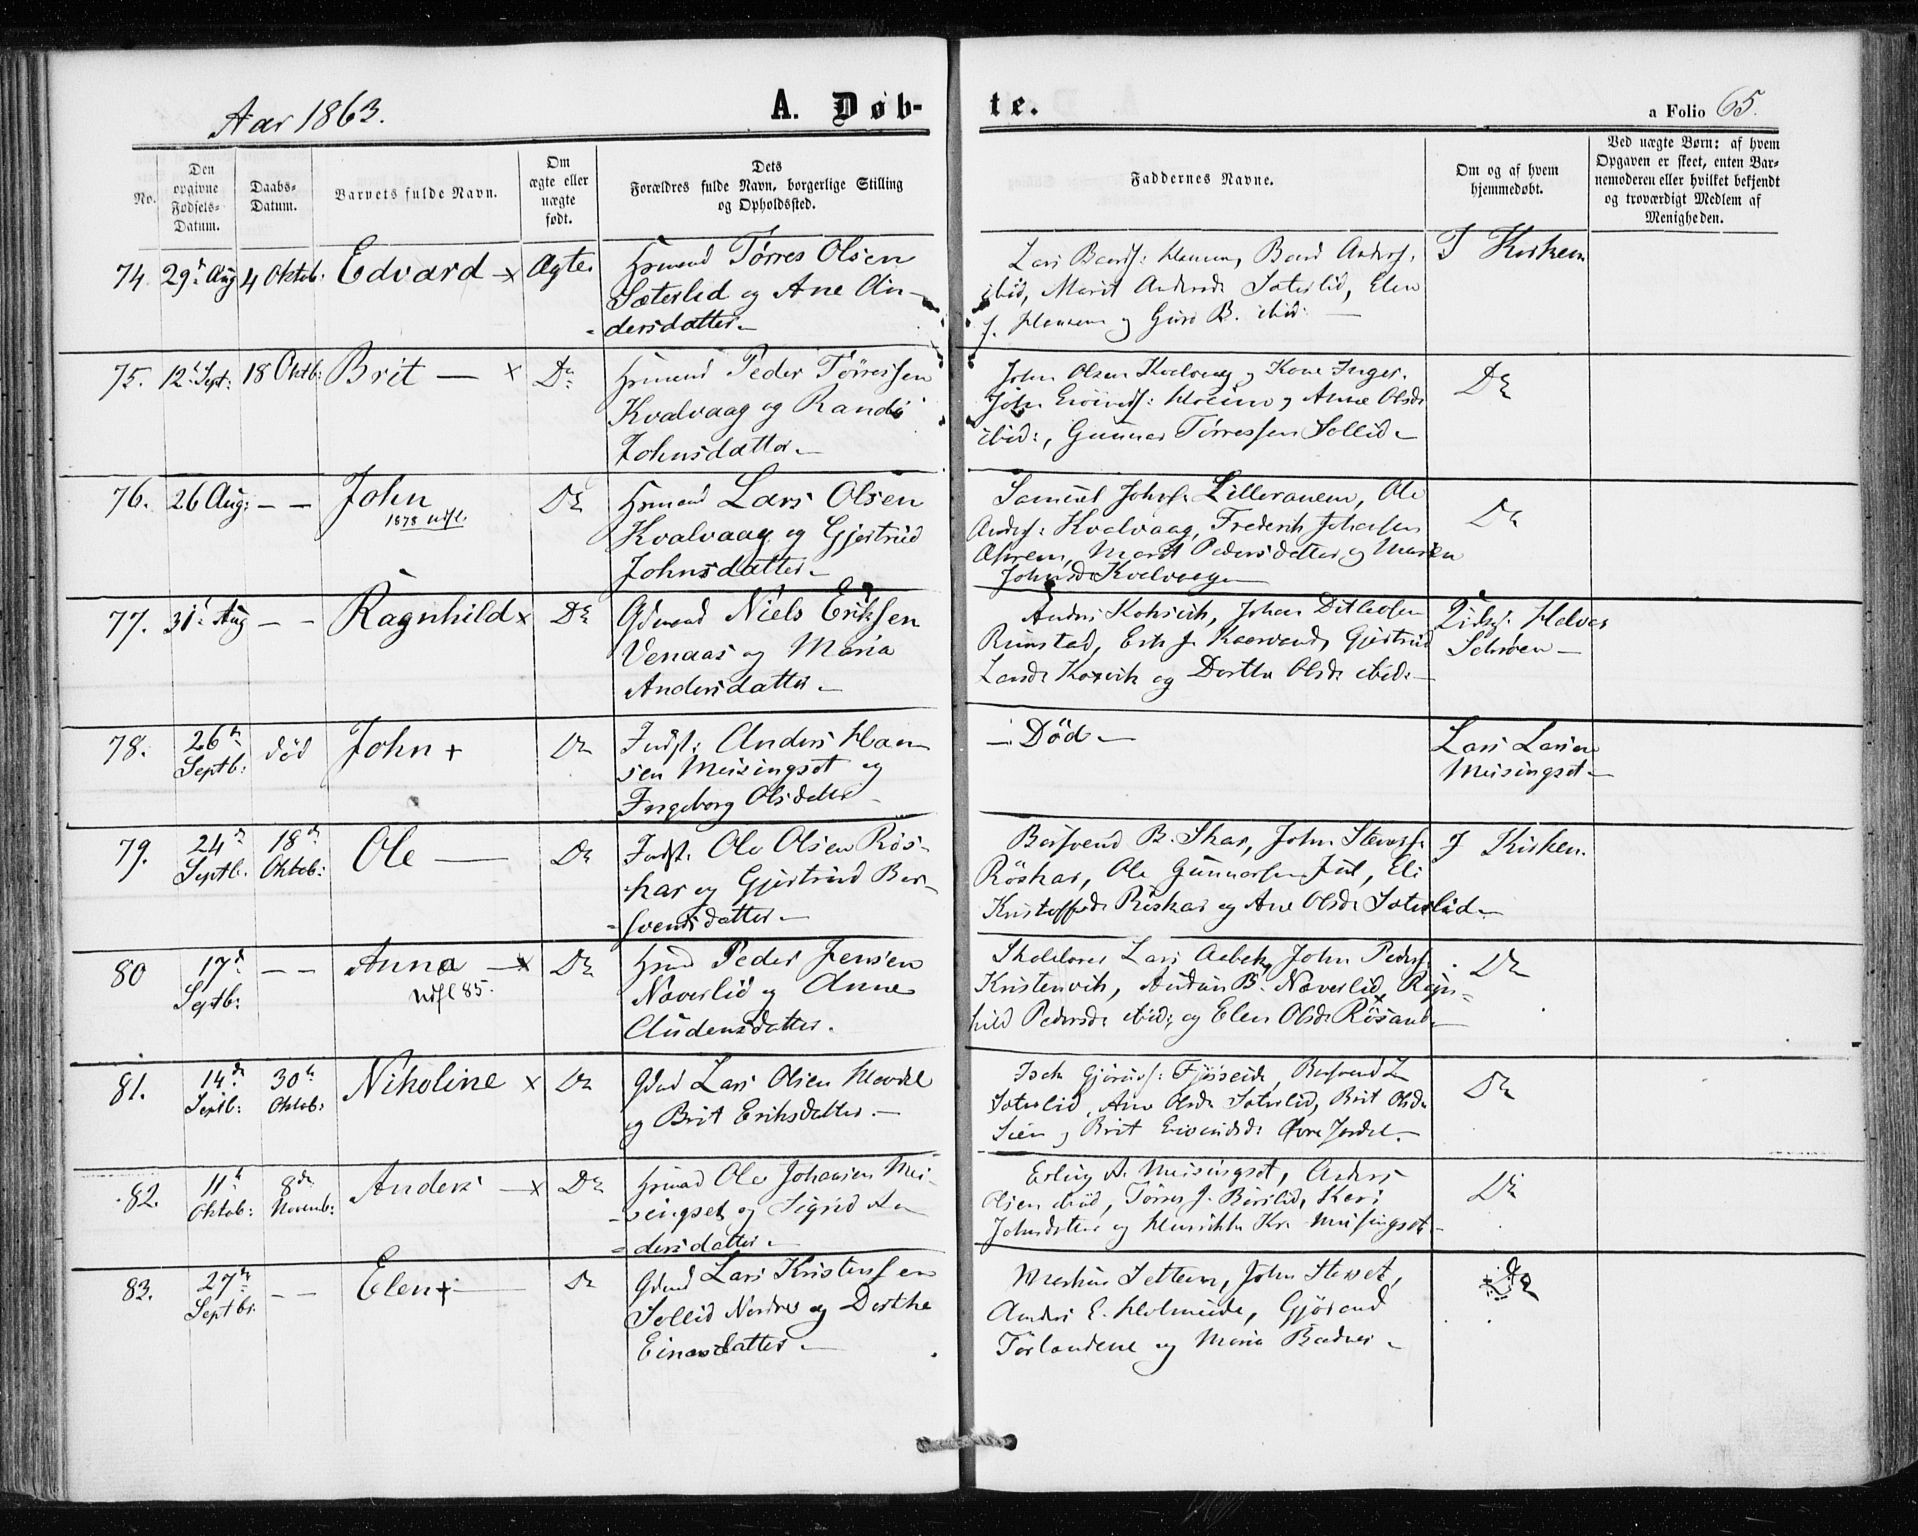 Aar 1863.
A. Døb-
te.
a Folio 65.
No.
Den
opgivne
Fødsels-
Datum.
Daabs-
Datum.
Barnets fulde Navn.
Om
ægte eller
uægte
født.
Dets
Forældres fulde Navn, borgerlige Stilling
og Opholdssted.
Faddernes Navne.
Om og af hvem
hjemmedøbt.
Ved uægte Børn: af hvem
Opgaven er skeet, enten Bar-
nemoderen eller hvilket bekjendt
og troværdigt Medlem af
Menigheden.
74. 29d Aug 4 Oktob: Edvard x Ægte Hrmand Tørres Olsen
Sæterlid og Ane An-
-dersdatter
Lars Baards: Hansen, Baard Anders:
ibid, Marit Andersd Sæterlid, Elen
og Guri B. ibid:
I Kirken
75. 12d Sept: 18 Oktb: Brit x Do Hrmand Peder Tørressen
Kvalvaag og Randi
Johnsdatter
John Olsen Kvalvaag og Kone Inger,
John Eivinds: og Anne Olsdr
ibid:, Gunner Tørressen Sollid
Do
76. 26 Aug: - - John
1878 udfl.
Do Hrmand Lars Olsen
Kvalvaag og Gjertrud
Johnsdatter
Samuel Johs: Lillevanem, Ole
Anders: Kvalvaag, Frederik Johansen
Marit Pedersdatter og Maren
Johnsd Kvalvaag
Do
77. 31d Aug - - Ragnhild x Do Gdmand Niels Eriksen
Venaas og Maria
Andersdatter
Anders Korsvik, Johan Ditlefsen
Rimstad, Erik J. Gjertrud
Larsd. Korsvik og Dorthe Olsd. ibid:
Halvor
Schrøen
78. 26d
Septb:
død John + Do Indst: Anders Han-
sen Meisingset og
Ingeborg Olsdatter
Død
Lars Larsen
Meisingset
79. 24d
Septb.
18d
Oktob:
Ole Do Indst: Ole Olsen Røs-
kar og Gjertrud Ber-
-svendsdatter
Bersvend B. Skar, John Stenss:
Røskar, Ole Gunnarsen Jul, Eli
Kristoffersd. Røskar og Ane Olsdr Sæterlid
I Kirken.
80 17d
Septb:
- - Anna x
udfl 85.
Do Hrmd Peder Jensen
Næverlid og Anne
Audensdatter.
Skolelærer Lars Aabek, John Peders:
Kristenvik, Audun B. Næverlid, Ragn-
hild Pedersd: ibid: og Elen Olsdr Røsand
Do
81. 14d
Septb:
30te
Oktob:
Nikoline x Do Gdmd Lars Olsen
og Brit Eriksdatter.
Isak Gjøruds: Fjøseide, Bersvend L
Sæterlid, Ane Olsdr Sæterlid, Brit Olsdr
og Brit Eivindsd: Øvre
Do
82. 11te
Oktob:
8de
Novemb:
Anders x Do Hrmad Ole Johansen Mei-
-singset og Sigrid An-
-dersdatter
Erling A. Meisingset, Anders
Olsen ibid, Tørres J. Børslid, Kari
Johnsdatter og Henrikke Kr. Meisingset
Do
83. 27de
Septbr.
- - Elen + Do Gdmd Lars Kristensen
Sollid Nordre og Dorthe
Einarsdatter
Markus Settem, John Stewet,
Anders E. Holmeide, Gjørand
Torlandene og Maria Bodner
Do